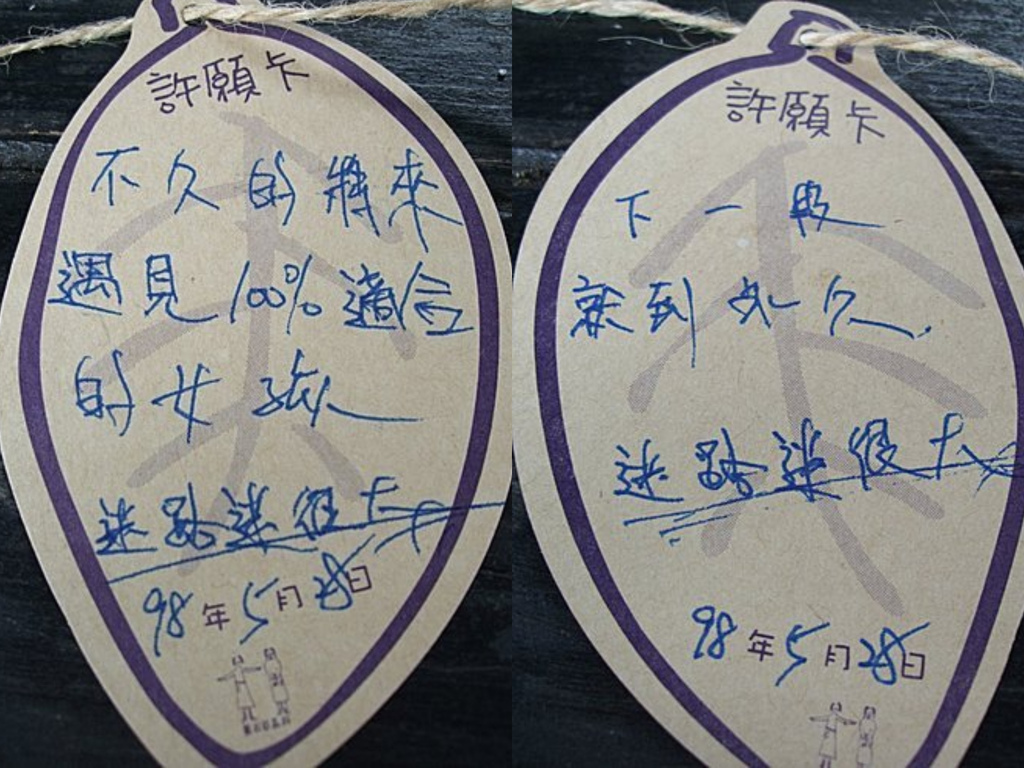 許願卡
不久的將來
遇見100%適合
的女孩
迷路迷很大
98年5月28日
許願卡
下一段
就到永久
迷路迷很大
98年5月28日